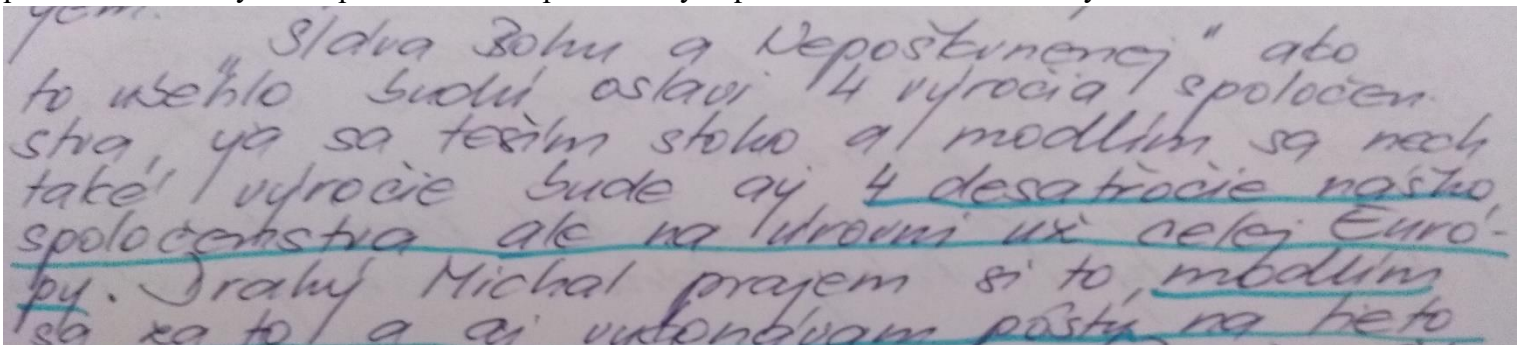 „Sláva Bohu a Nepoškvrnenej" ako
to ubehlo budú oslavi 4 výročia spoločen
stva, ya sa teším stoho a modlím sa nech
také výročie bude aj 4 desaťročie nášho
spoločenstva ale na úrovni už celej Euró-
py. Drahý Michal prajem si to, modlím
sa za to a aj vykonávam pôsty na tieto